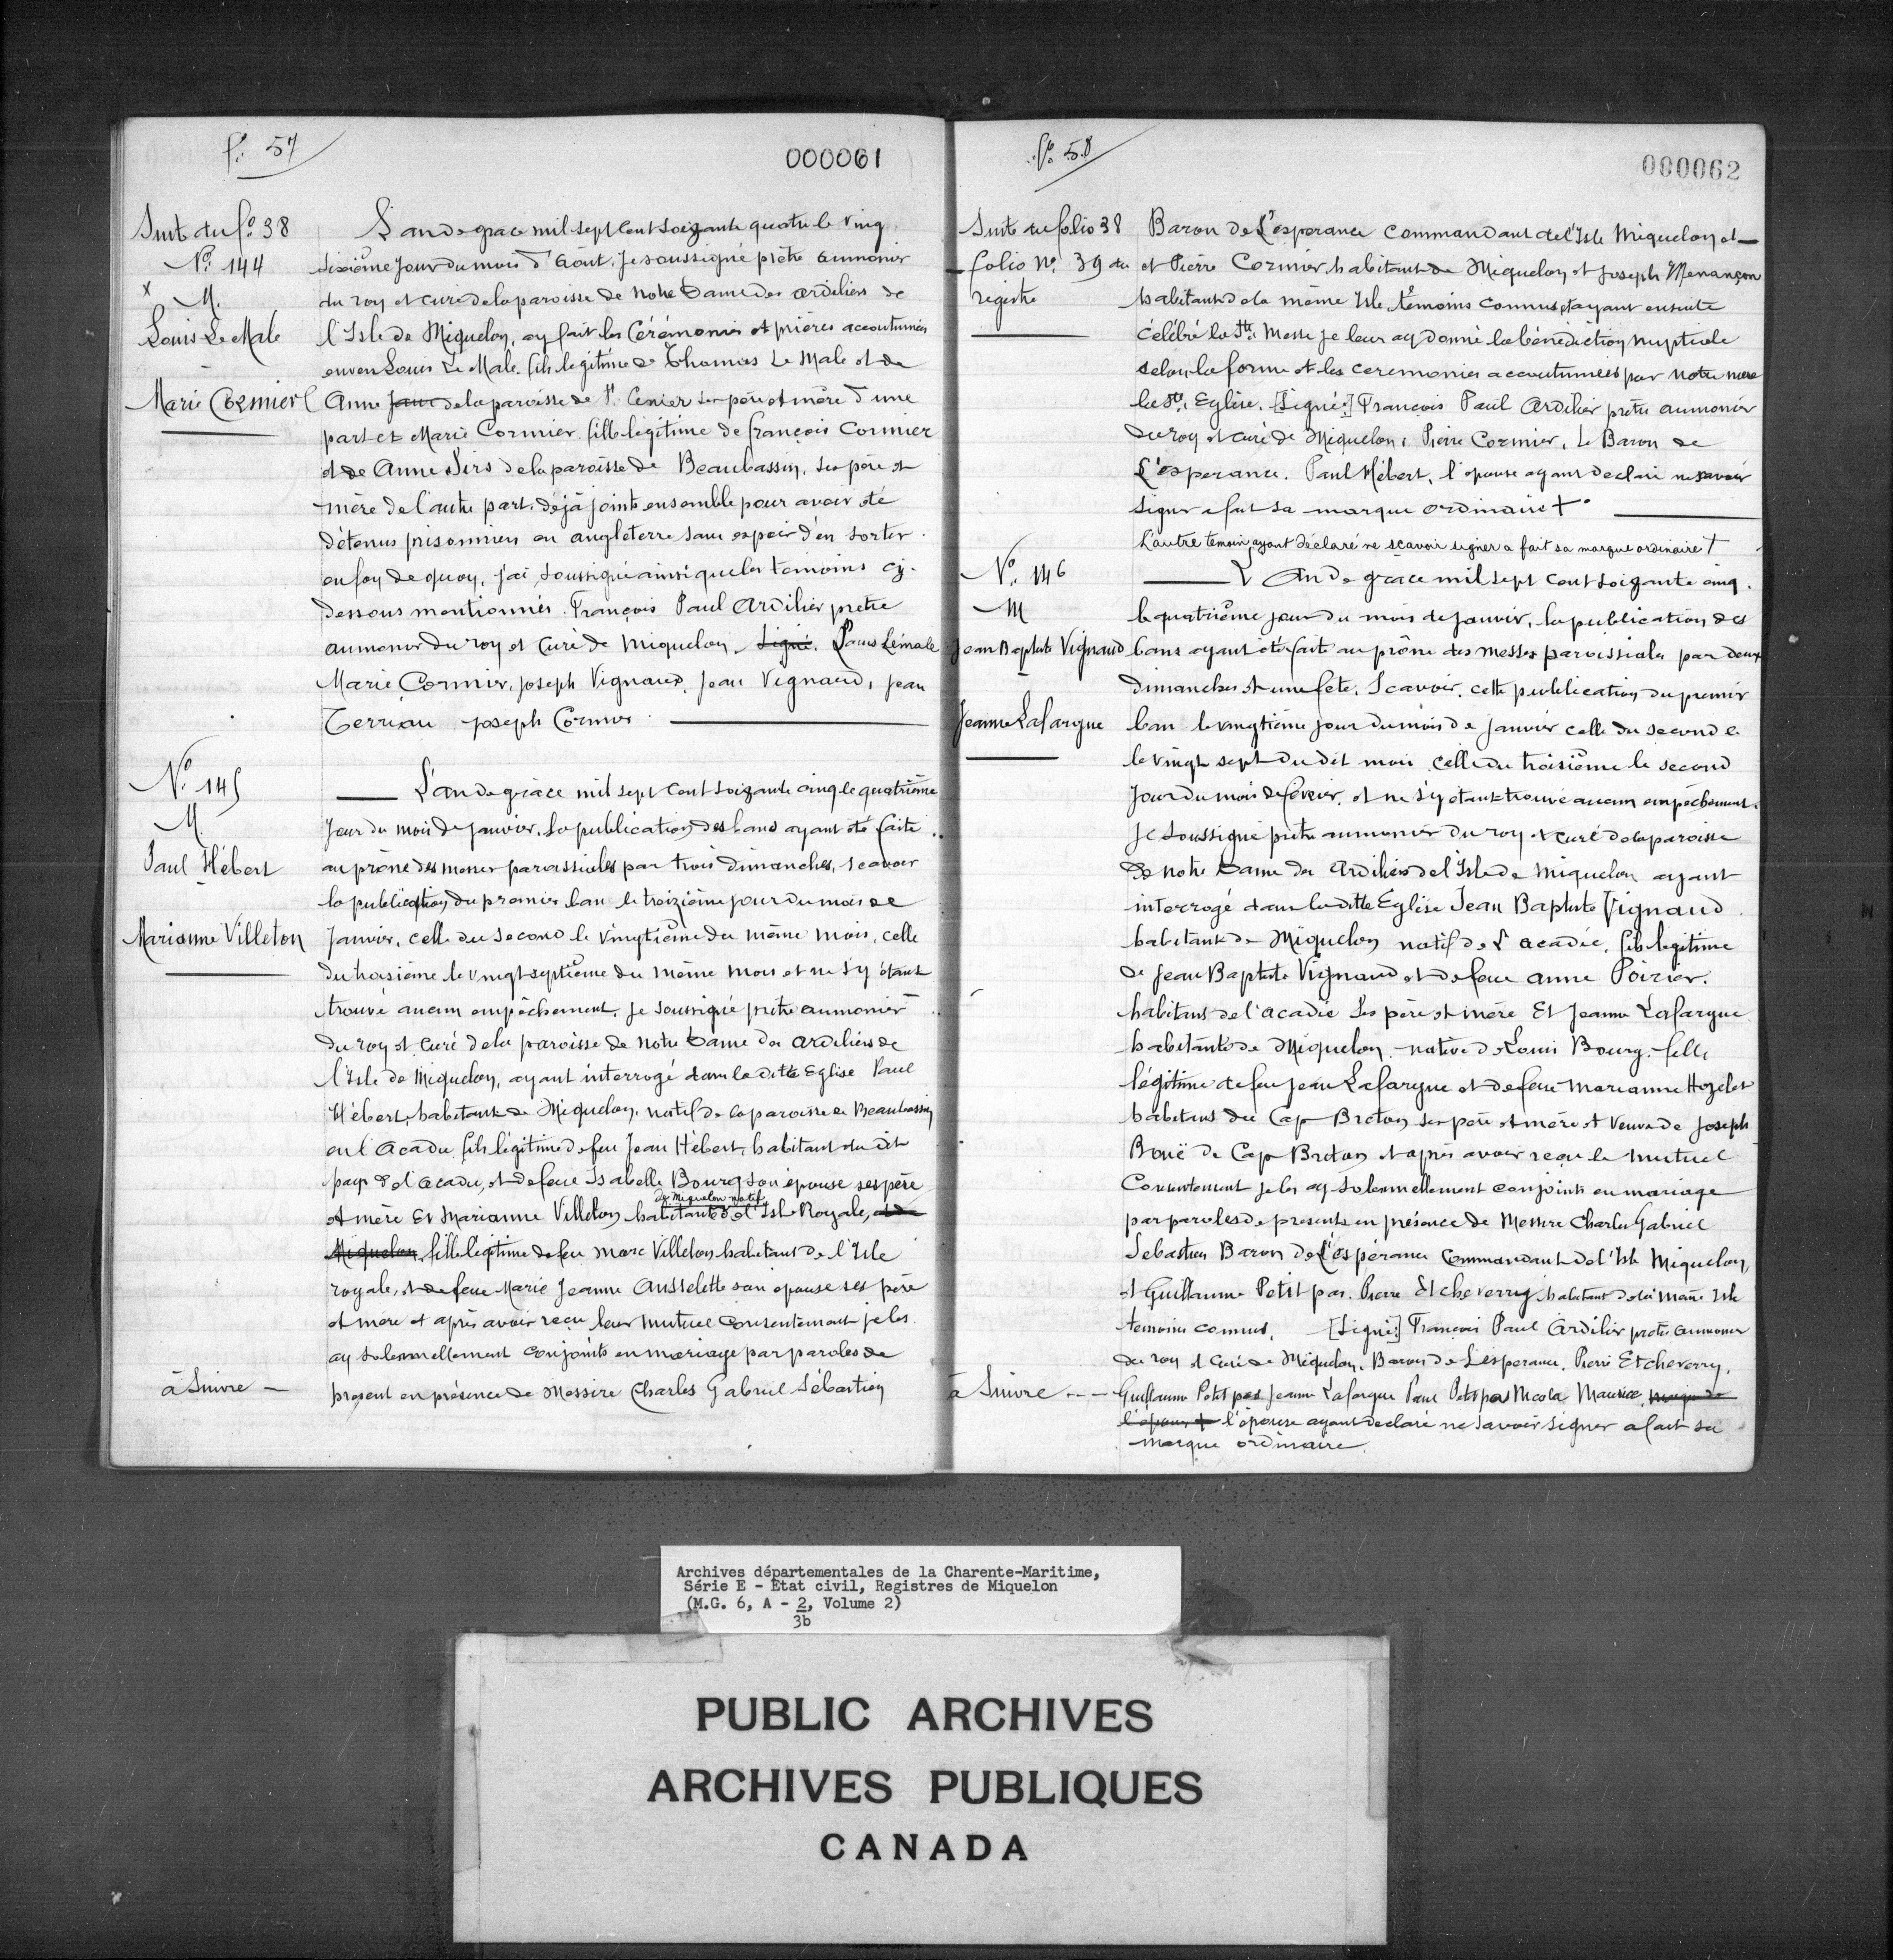 fo. 57
000061
Suite du fo. 38
No. 144
x
M.
Louis Le Male
Marie Cormier
L'an de grace mil sept cent soizante quatre le vingt
sixième jour du mois d'Août, je soussigné prêtre aumonier
du roy et curé de la paroisse de Notre Dame des ardiliers de
l'Isle de Miquelon, ay fait les Cérémonies et prières accoutumées
envers Louis Le Male fils legitime de Thomas Le Male et de
Anne de la paroisse de St. Cenier ses père et mère d'une
part et Marie Cormier fille legitime de françois Cormier
et de Anne Sirs de la paroisse de Beaubassin, ses père et
mère de l'autre part, déjà joints ensemble pour avoir été
détenus prisonniers en angleterre sans espoir d'en sortir.
en foy de quoy, j'ai soussigné ainsi que les temoins cy-
dessous mentionnés. François Paul Ardilier pretre
aumonier du roy et Curé de Miquelon, Signé. Louis Lémale
Marie Cormier, Joseph Vignaud, Jean Vignaud, Jean
Terriau Joseph Cormier
No. 145
M.
Paul Hébert
Marianne Villeton
L'an de grâce mil sept cent soizante cinq le quatrième
jour du mois de janvier. La publication des bans ayant été faite
au prône des messes paroissiales par trois dimanches, scavoir
la publication du premier ban le treizième jour du mois de
Janvier, celle du second le vingtième du même mois, celle
du troisième le vingt septième du même mois et ne s'y étant
trouvé aucun empêchement, je soussigné prêtre aumonier
du roy et curé de la paroisse de Notre Dame des ardiliers de
l'Isle de Miquelon, ayant interrogé dans la ditte Eglise Paul
Hébert, habitant de Miquelon, natif de la paroisse de Beaubassin
en l'Acadie fils légitime de feu Jean Hébert, habitant du dit
pays de l'acadie, et de feue Isabelle Bourg son épouse ses père
de Miquelon native
et mère Et Marianne Villeton habitante de l'Isle Royale, et de
Miquelon, fille légitime de feu Marc Villeton habitant de l'Isle
royale, et de feue Marie Jeanne Ausselette son épouse ses père
et mère et après avoir reçu leur mutuel consentement je les
ay solemnellement conjoints en mariage par paroles de
présent en présence de Messire Charles Gabriel Sébastien
à Suivre —
fo. 58
000062
Suite du folio 38
folio No. 39 du
registre
Baron de L'esperance Commandant de l'Isle Miquelon et
et Pierre Cormier habitant de Miquelon et Joseph Menançon
habitant de la même Isle témoins connus et ayant ensuite
célébré la Ste. Messe je leur ay donné la bénédiction nuptiale
selon la forme et les ceremonies accoutumées par notre mère
la Ste. Eglise. [Signé:] François Paul Ardilier pretre aumonier
du roy et curé de Miquelon, Pierre Cormier, Le Baron de
L'esperance. Paul Hébert, l'épouse ayant declaré ne savoir
signer a fait sa marque ordinaire +
L'autre témoin ayant déclaré ne sçavoir signer a fait sa marque ordinaire +
No. 146
M
Jean Baptiste Vignaud
Jeanne Lafargue
L'An de grace mil sept cent soizante cinq.
le quatrième jour du mois de janvier, la publication des
bans ayant été faite au prône des messes paroissiales par deux
dimanches et une fete, Scavoir, cette publication du premier
ban le vingtième jour du mois de janvier celle du second le
le vingt sept du dit mois celle du troisième le second
jour du mois de février, et ne s'y étant trouvé aucun empêchement.
Je soussigné prêtre aumonier du roy et curé de la paroisse
de Notre Dame des Ardiliers de l'Isle de Miquelon ayant
interrogé dans la ditte Eglise Jean Baptiste Vignaud
habitant de Miquelon natif de L'acadie, fils legitime
de Jean Baptiste Vignaud et de feue Anne Poirier.
habitans de l'acadie ses père et mère Et Jeanne Lafargue
habitante de Miquelon native de Louis Bourg. fille
légitime de feu Jean Lafargue et de feue Marianne Hozelet
habitans du Cap Breton ses père et mère et veuve de Joseph
Bouë de Cap Breton et après avoir reçu le mutuel
Consentement je les ay solemnellement conjoints en mariage
par paroles de presents en présence de Messire Charles Gabriel
Sébastien Baron de L'espérance Commandant de l'Isle Miquelon,
et Guillaume Petit pas. Pierre Etcheverry habitant de la même Isle
temoins connus, [Signé:] François Paul Ardilier pretre aumonier
du roy et curé de Miquelon. Baron de Lesperance. Pierre Etcheverry,
Guillaume Petit pas Jeanne Lafargue Paul Petit pas Nicola Maurice,
l'épouse ayant declaré ne savoir signer a fait sa
marque ordinaire.
à Suivre --
Archives départementales de la Charente-Maritime,
Série E - État civil, Registres de Miquelon
(M.G. 6, A - 2, Volume 2)
3b
PUBLIC ARCHIVES
ARCHIVES PUBLIQUES
CANADA